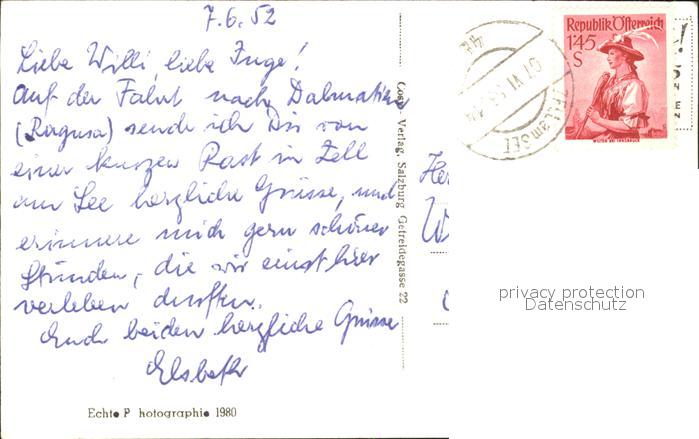 7.6.52
Liebe Willi, liebe Inge!
Auf der Fahrt nach Dalmatien
(Ragusa) sende ich Dir von
einer kurzen Rast in Zell
am See herzliche Grüsse, und
erinnere mich gern schöner
Stunden, die wir einst hier
verleben durften.
Euch beiden herzliche Grüsse
Elsbeth
Echte Photographie 1980
Cosy-Verlag, Salzburg Getreidegasse 22
Republik Österreich
1'45
S
WILTEN BEI INNSBRUCK
ZELL am SEE
privacy protection
Datenschutz